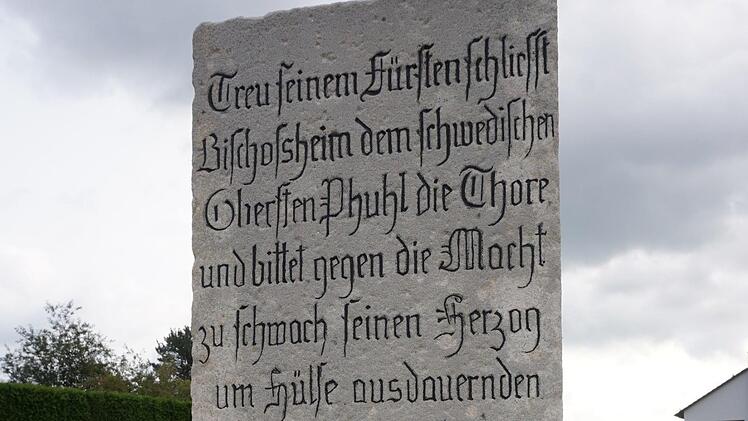 Treu seinem Fürsten schliesst
Bischofsheim dem schwedischen
Obersten Phuhl die Thore
und bittet gegen die Macht
zu schwach seinen Herzog
um Hülfe ausdauernden